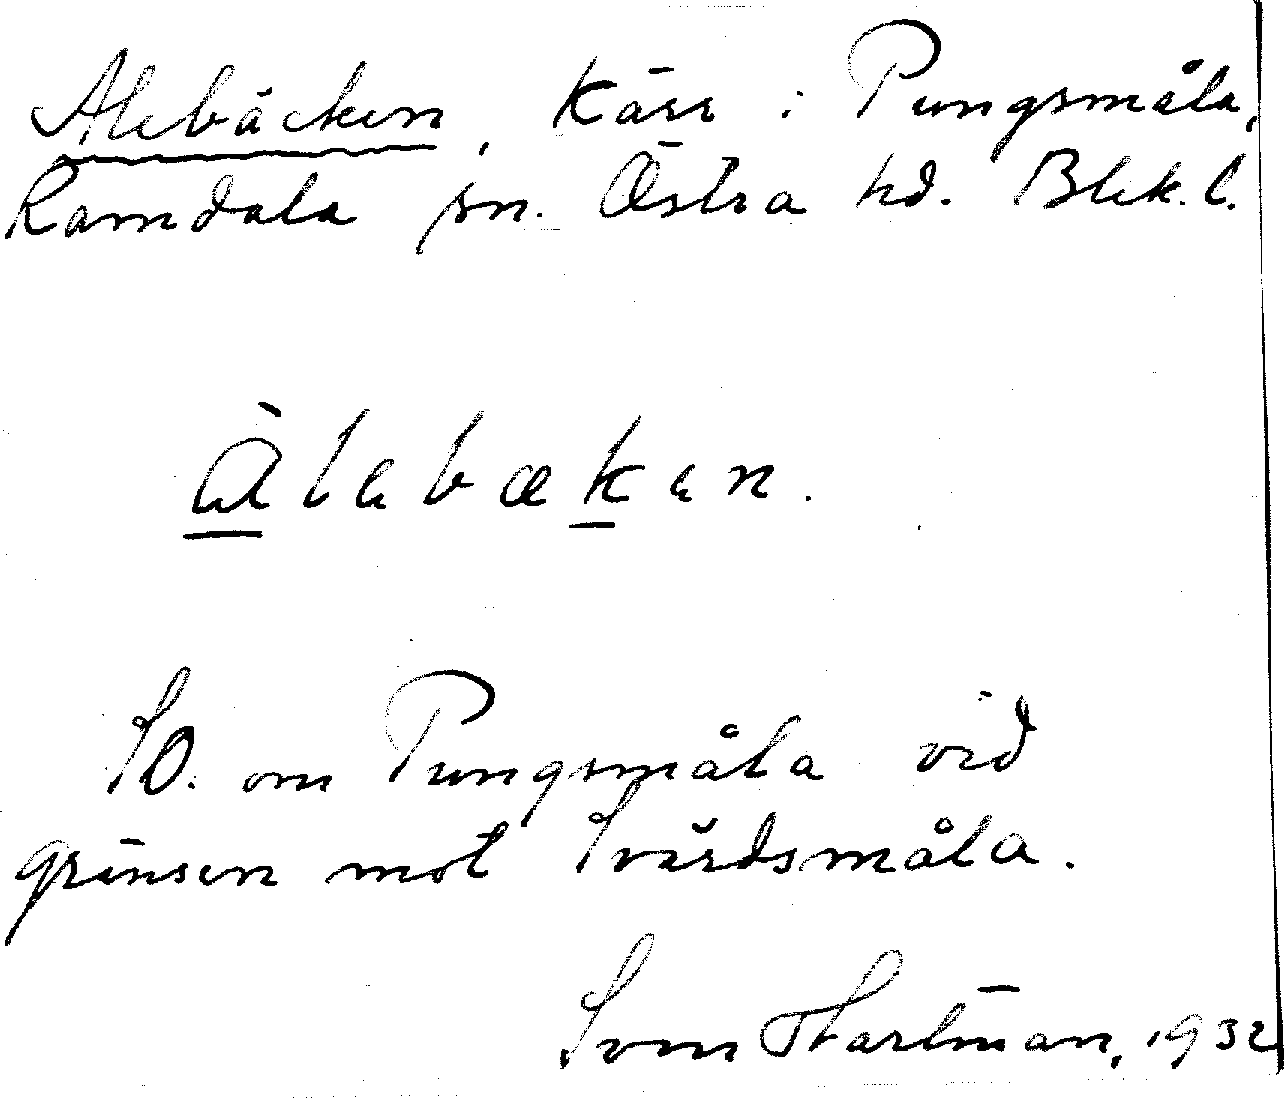 Alebäcken, Kärr i Pungsmåla,
Ramdala sn. Östra hd. Blek. l.
àlebæken.
SO. om Pungsmåla vid
gränsen mot Svärdsmåla.
Sven Hartman, 1932